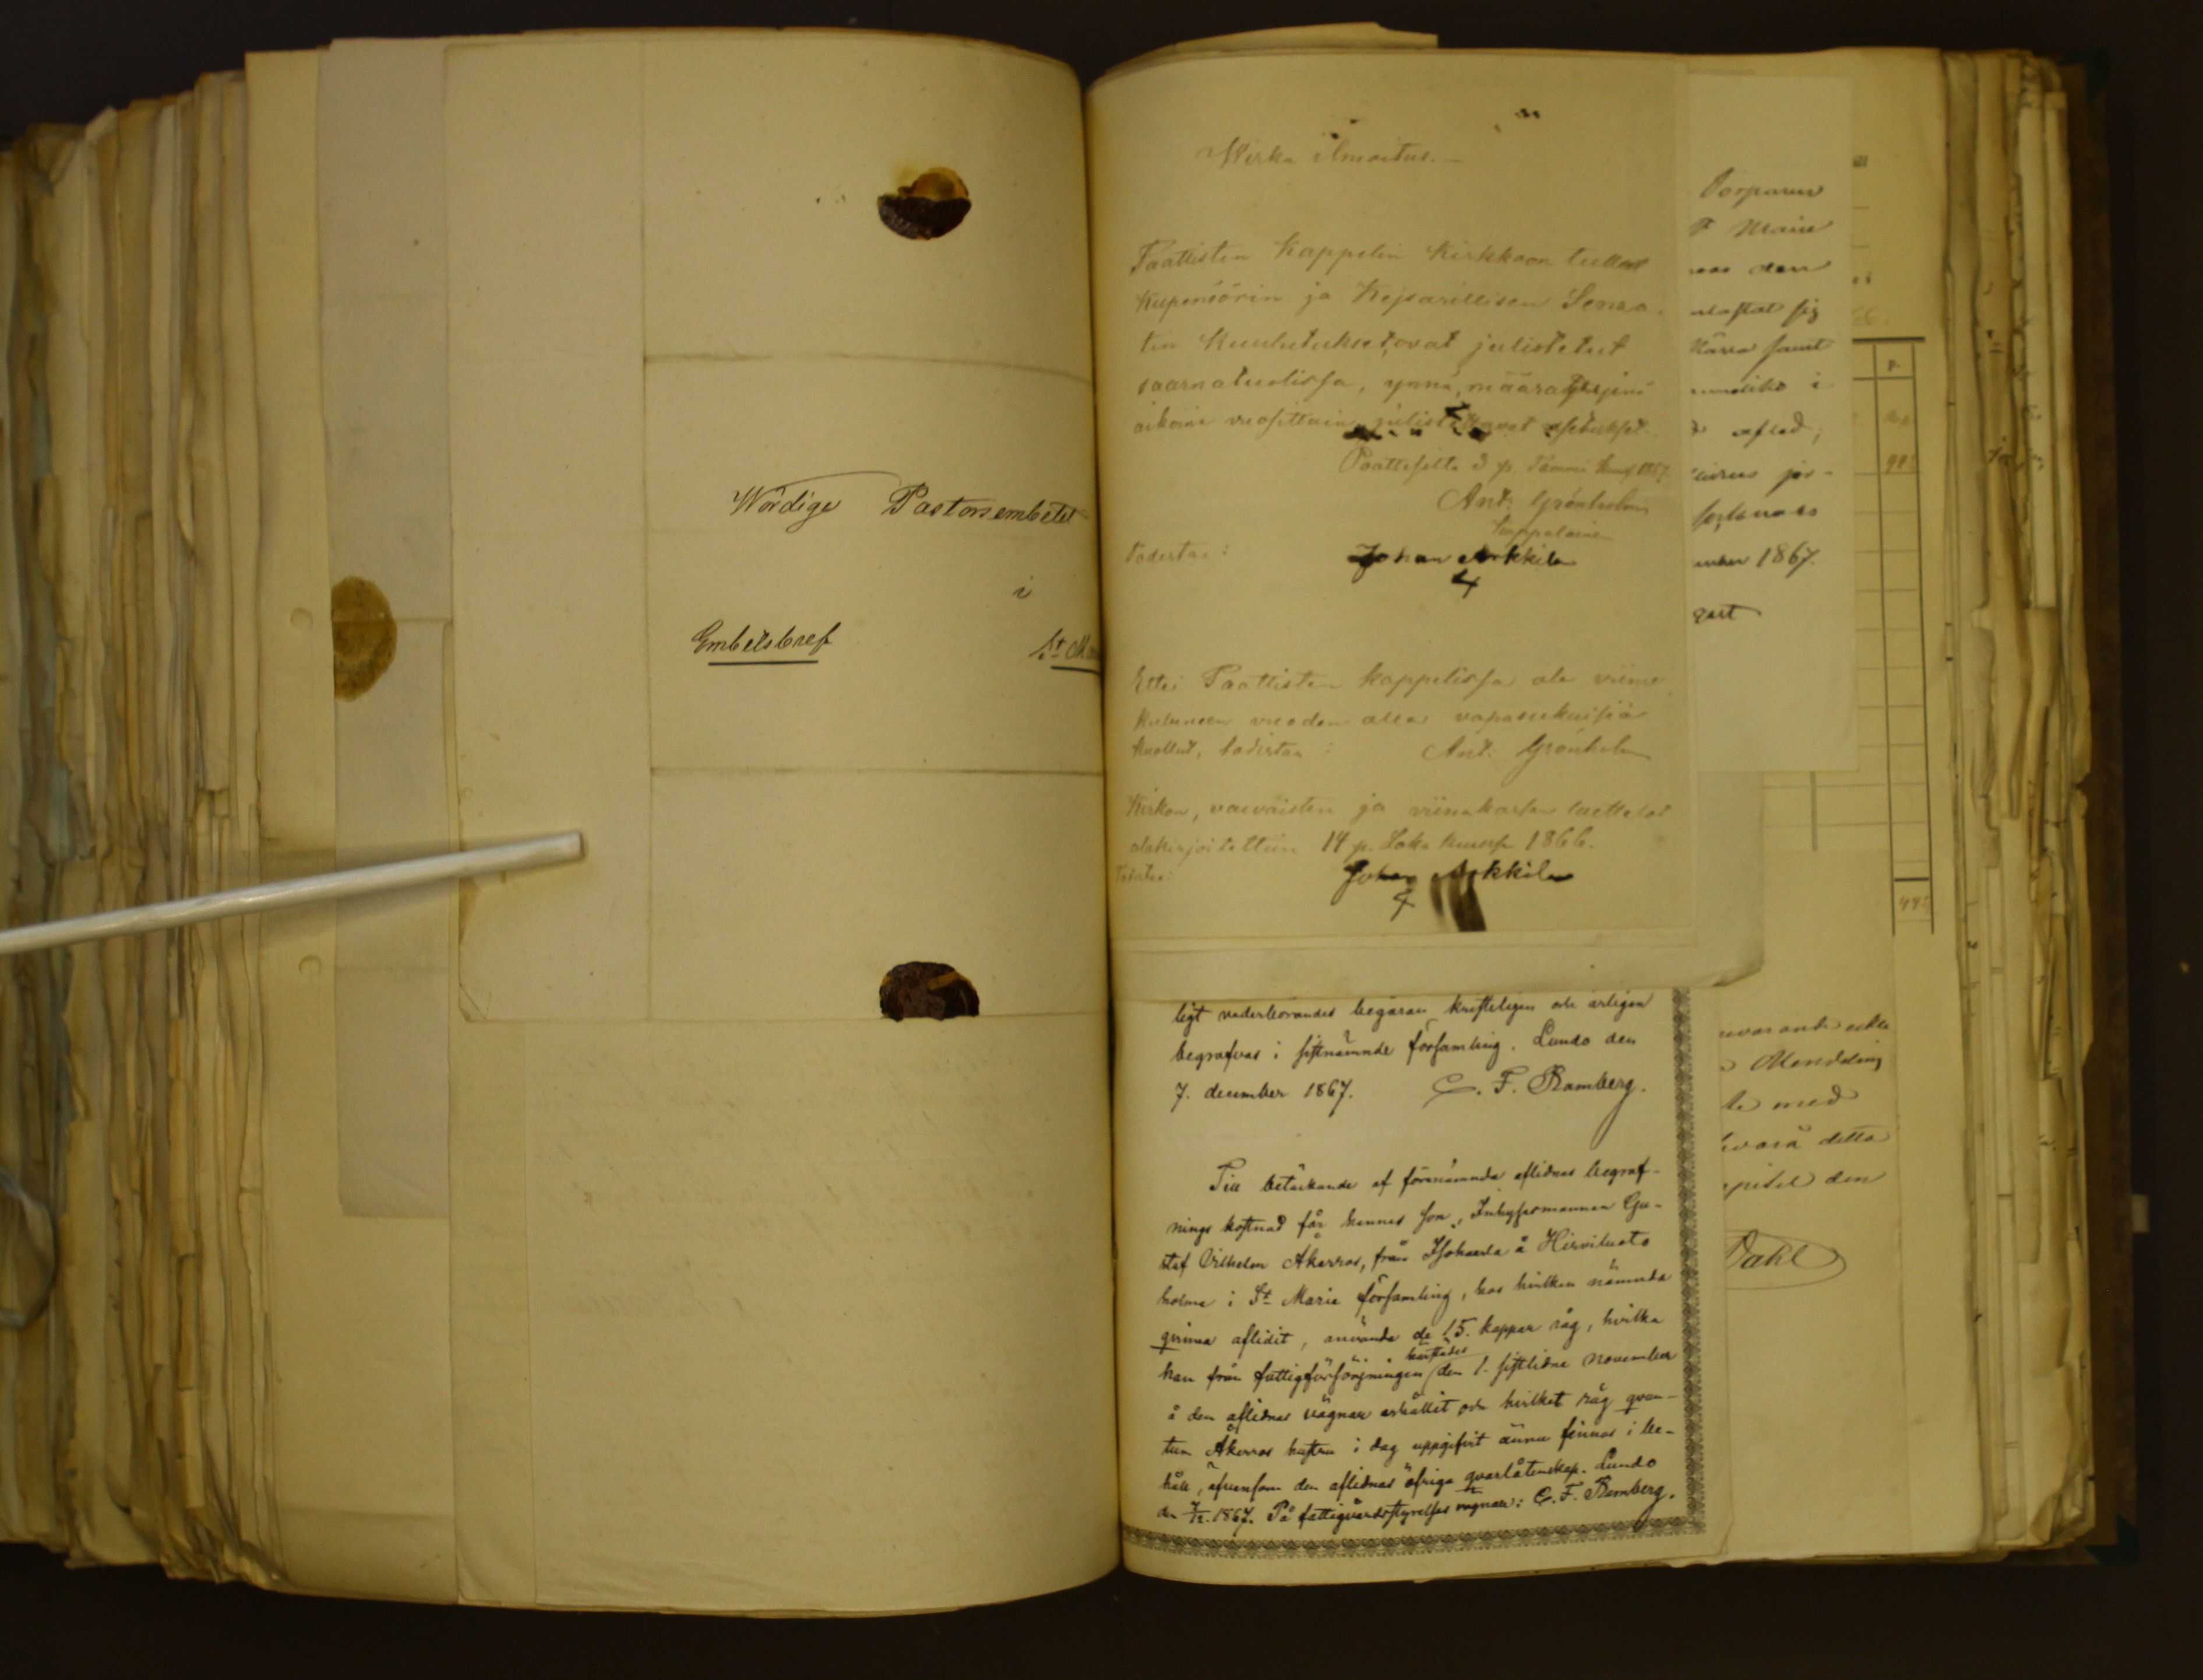 Wördige Pastorsembetet
i
Embetsbref St Mar
Wirka ilmoitus.
Paattisten Kappelin Kirkkoon tullet
Kupenöörin ja Kejsarillisen Senaa-
tin Kuulutukset, ovat julistetut
saarnatuolissa, ynnä, määrättyjinä
aikoina vuosittain julistettavat asetukset.
Paattisilla 3 p. Tammi kuus 1867.
Ant: Grönholm
kappalainen
Todistaa: Johan Arkkila
Ettei Paattisten kappelissa ole viime
kuluneen vuoden alla vapasukuisia
kuollut, todistaa: Ant: Grönholm
Kirkon, vaivaisten ja viinakassan luettelot
alakirjoitettiin 14 p. Loka kuussa 1866.
Todistaa: Johan Arkkila
ligt vederbörandes begäran kristeligen och ärligen
begrafvas i sistnämnde församling. Lundo den
7. december 1867. C. F. Ramberg.
Till betäckande af förenämnda aflidnas begraf-
nings kostnad får hennes son, Inhysesmannen Gu-
staf Vilhelm Åkerros, från Isokaerla å Hirviluoto
holme i St Marie församling, hos hvilken nämnda
qvinna aflidit, använda de 15. kappar råg, hvilka
han från fattigförsörjningen härstädes den 1. sistlidne november
å den aflidnas vägnar erhållit och hvilket råg qvan-
tum Åkerros hustru i dag uppgifvit ännu finnas i be-
håll, äfvensom den aflidnas öfriga qvarlåtenskap. Lundo
den 7/12. 1867. På fattigvårdsstyrelses vägnar: C. F. Ramberg.
Torparen
Marie
den
sig
Kärra samt
i
aflad;
1867.
Meddelning
te med
detta
den
Dahl